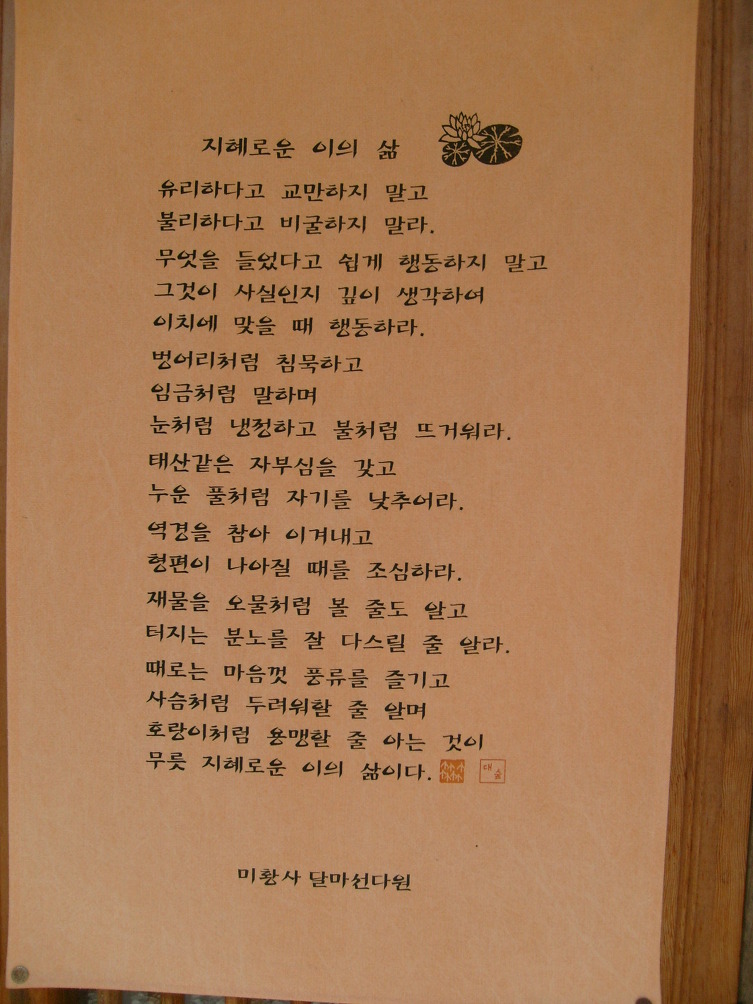 지혜로운 이의 삶
유리하다고 교만하지 말고
불리하다고 비굴하지 말라.
무엇을 들었다고 쉽게 행동하지 말고
그것이 사실인지 깊이 생각하여
이치에 맞을 때 행동하라.
벙어리처럼 침묵하고
임금처럼 말하며
눈처럼 냉정하고 불처럼 뜨거워라.
태산같은 자부심을 갖고
누운 풀처럼 자기를 낮추어라.
역경을 참아 이겨내고
형편이 나아질 때를 조심하라.
재물을 오물처럼 볼 줄도 알고
터지는 분노를 잘 다스릴 줄 알라.
때로는 마음껏 풍류를 즐기고
사슴처럼 두려워할 줄 알며
호랑이처럼 용맹할 줄 아는 것이
무릇 지혜로운 이의 삶이다.
대숲
미황사 달마선다원